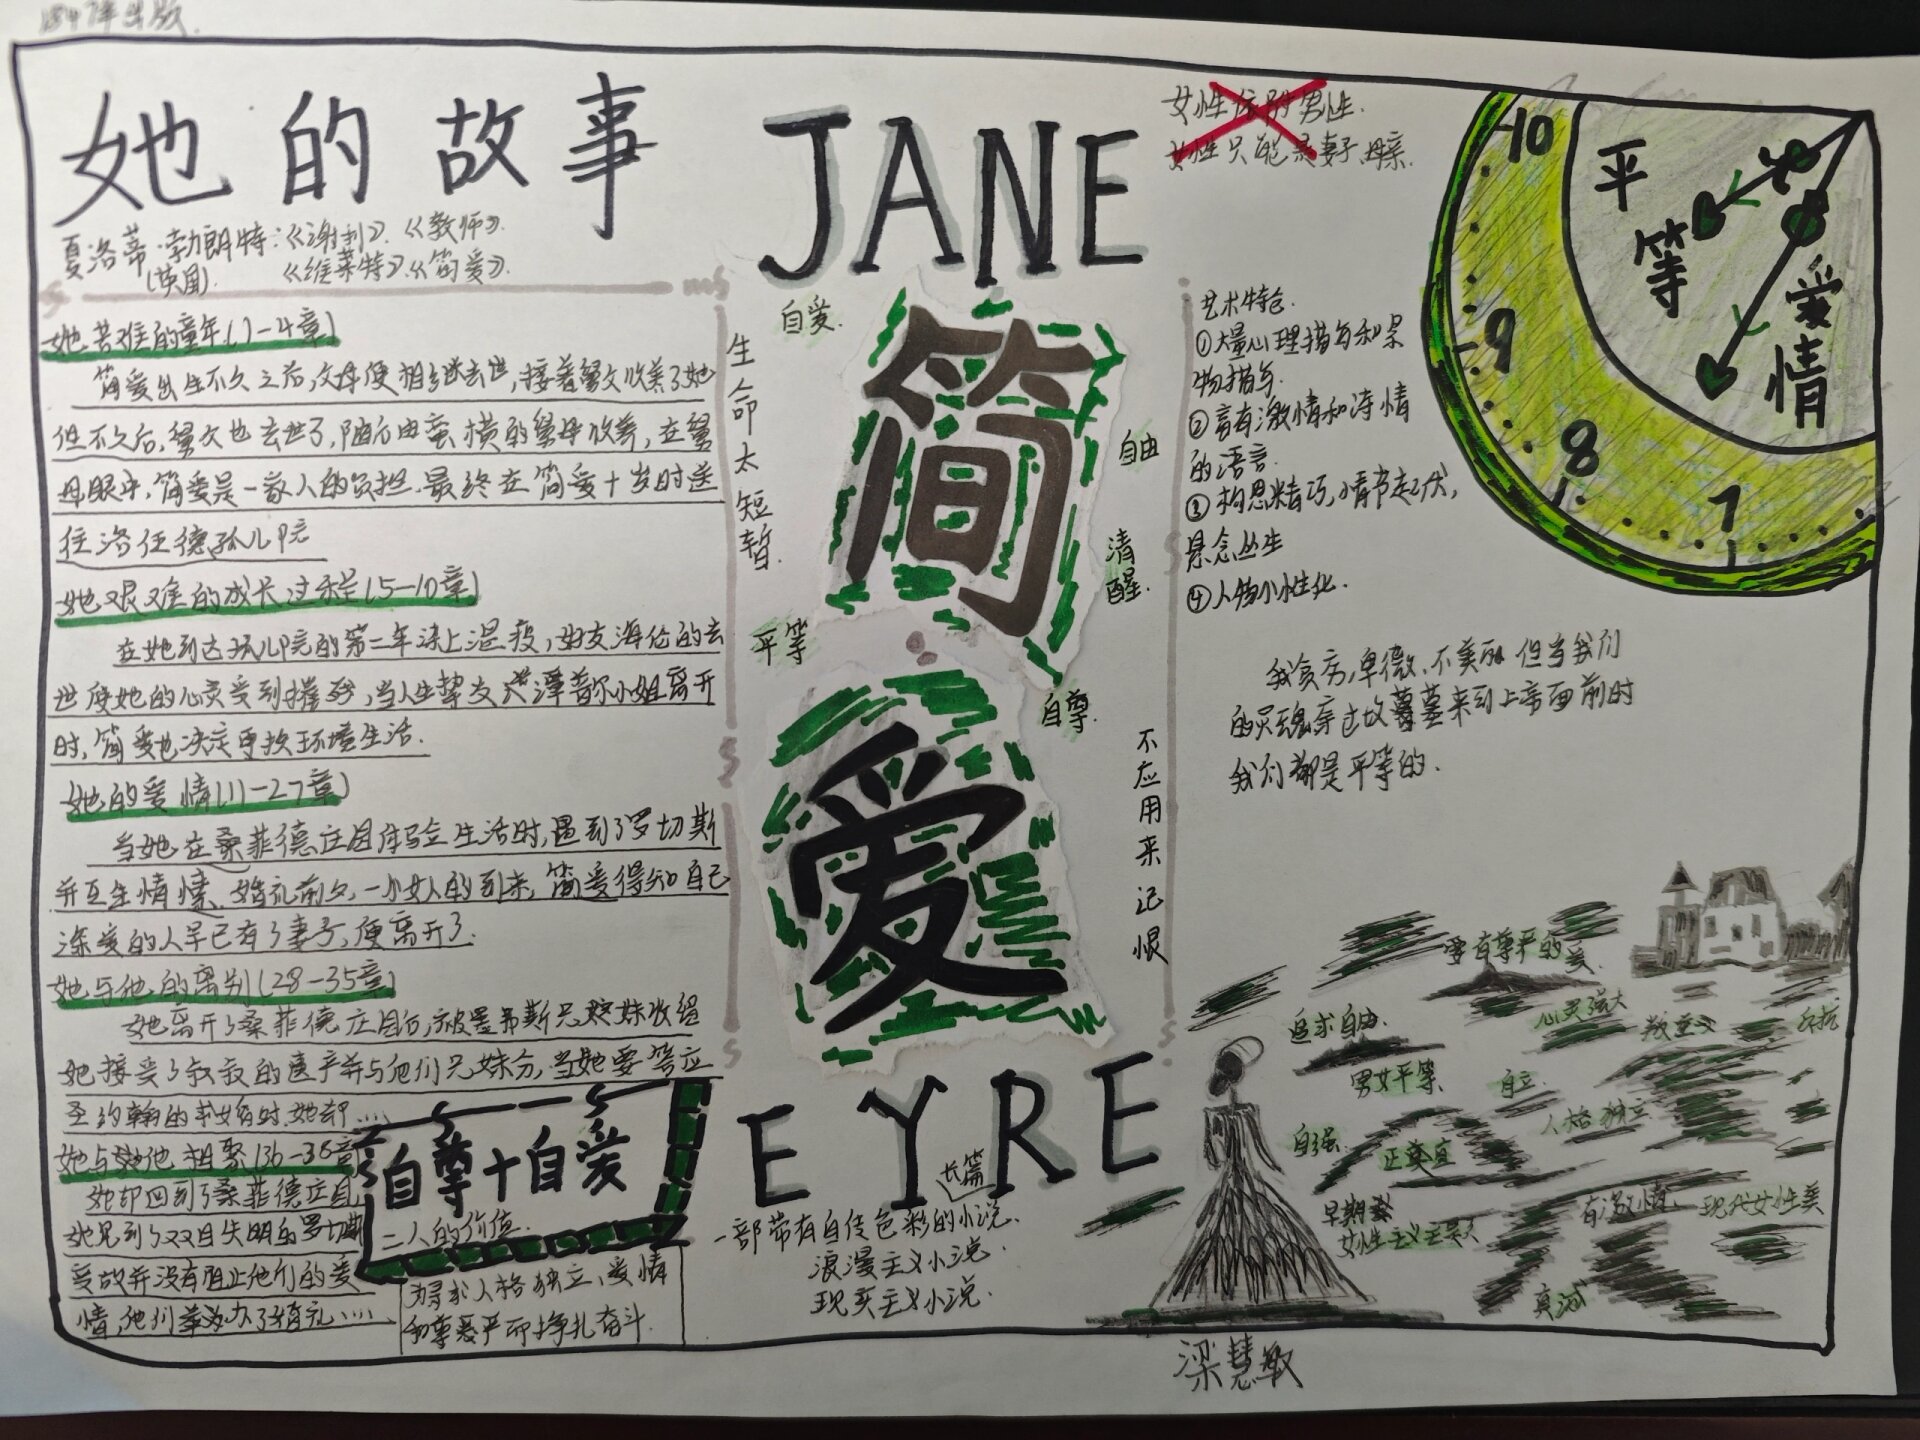 1847年出版.
她的故事
夏洛蒂·勃朗特:《谢利》.《教师》.
(英国) 《维莱特》.《简爱》.
她苦难的童年(1-4章)
简爱出生不久之后,父母便相继去世,接着舅父收养了她
但不久后,舅父也去世了,随后由蛮横的舅母收养,在舅
母眼中,简爱是一家人的负担.最终在简爱十岁时送
往洛任德孤儿院
她艰难的成长过程(5-10章)
在她到达孤儿院的第二年染上温疫,好友海伦的去
世度她的心灵受到摧残,当人生挚友谭普尔小姐离开
时,简爱也决定更换环境生活.
她的爱情(11-27章)
当她在桑菲德庄园体验生活时,遇到了罗切斯
并互生情愫.婚礼前夕,一个女人的到来,简爱得知自己
深爱的人早已有了妻子,便离开了.
她与他的离别(28-35章)
她离开了桑菲德庄园后,被墨弗斯兄妹收留
她接受了叔叔的遗产并与他们兄妹分,当她要答应
圣约翰的求婚时,她却....
她与他相聚(36-38章
她却回到了桑菲德庄园
她见到了双目失明的罗切斯
变故并没有阻止他们的爱
情,他们举办了婚礼.....
自尊+自爱
=人的价值.
为寻求人格独立,爱情
和尊严而挣扎奋斗.
JANE
简
爱
EYRE
自爱.
自由
清醒.
平等
自尊.
生命太短暂.
不应用来记恨
长篇
一部带有自传色彩的小说.
浪漫主义小说.
现实主义小说.
女性依附男性.
女性只能是妻子母亲.
艺术特色.
①大量心理描写和景
物描写.
②富有激情和诗情
的语言.
③构思精巧,情节起伏,
悬念丛生
④人物个性化.
我贫穷,卑微、不美丽.但当我们
的灵魂穿过坟墓来到上帝面前时
我们都是平等的.
10
9
8
7
平等
爱情
要有尊严的爱.
追求自由.
心灵强大
叛逆
反抗
男女平等.
自立.
人格独立
自强.
正直
早期
女性主义
有激情.
现代女性美
真诚
梁慧敏